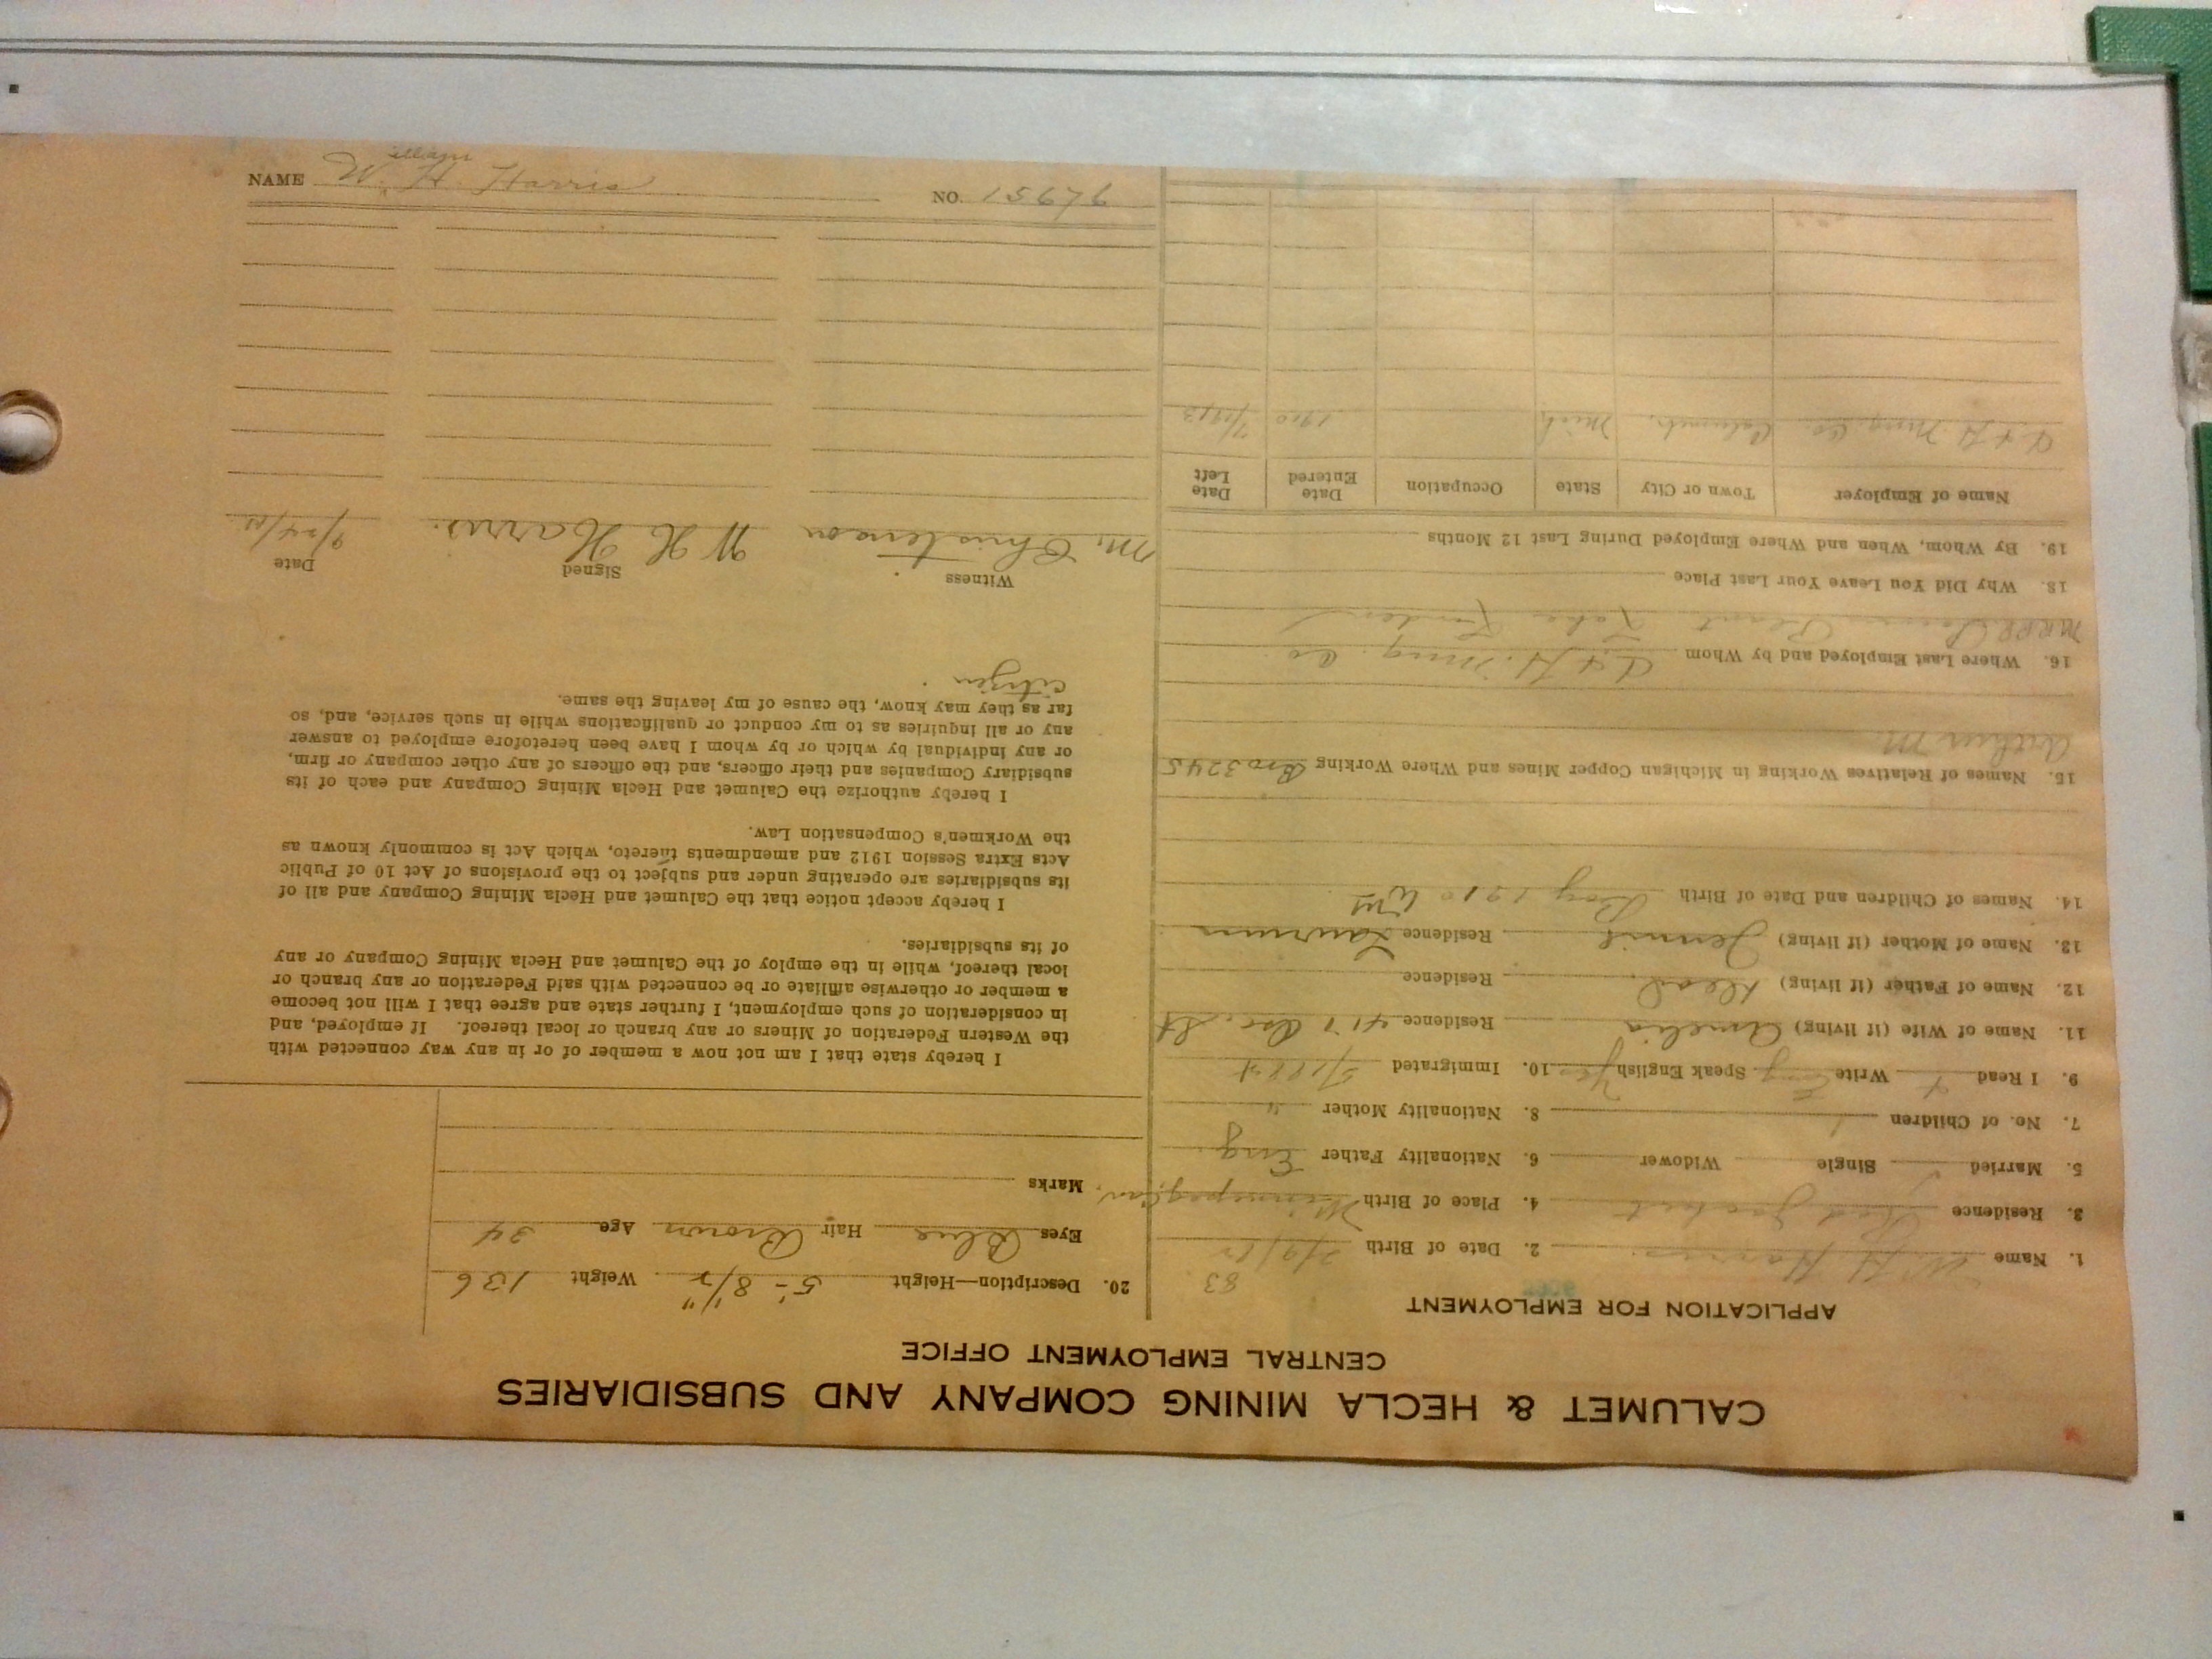 CALUMET & HECLA MINING COMPANY AND SUBSIDIARIES
CENTRAL EMPLOYMENT OFFICE
APPLICATION FOR EMPLOYMENT
83
1. Name W. H. Harris 2. Date of Birth
3. Residence Red Jacket 4. Place of Birth Winnipeg, Can.
5. Married Single Widower 6. Nationality Father Eng.
7. No. of Children 1 8. Nationality Mother "
9. I Read Write Eng Speak English Yes 10. Immigrated
11. Name of Wife (if living) Amelia Residence 417 Osc. St
12. Name of Father (if living) Dead Residence
13. Name of Mother (if living) Jennie Residence Laurium
14. Names of Children and Date of Birth Boy 1910 Wm
15. Names of Relatives Working in Michigan Copper Mines and Where Working Bro 3245
Arthur M.
16. Where Last Employed and by Whom C. & H. Mng. Co.
Plant Lake Linden
18. Why Did You Leave Your Last Place
19. By Whom, When and Where Employed During Last 12 Months
Name of Employer Town or City State Occupation Date Entered Date Left
C. & H. Mng. Co. Calumet, Mich 1910
20. Description—Height 5'-8½" Weight 136
Eyes Blue Hair Brown Age 34
Marks
I hereby state that I am not now a member of or in any way connected with
the Western Federation of Miners or any branch or local thereof. If employed, and
in consideration of such employment, I further state and agree that I will not become
a member or otherwise affiliate or be connected with said Federation or any branch or
local thereof, while in the employ of the Calumet and Hecla Mining Company or any
of its subsidiaries.
I hereby accept notice that the Calumet and Hecla Mining Company and all of
its subsidiaries are operating under and subject to the provisions of Act 10 of Public
Acts Extra Session 1912 and amendments thereto, which Act is commonly known as
the Workmen's Compensation Law.
I hereby authorize the Calumet and Hecla Mining Company and each of its
subsidiary Companies and their officers, and the officers of any other company or firm,
or any individual by which or by whom I have been heretofore employed to answer
any or all inquiries as to my conduct or qualifications while in such service, and, so
far as they may know, the cause of my leaving the same.
citizen
Witness Signed Date
M. Christenson W H Harris
NAME W. H. Harris NO. 15679
illiam